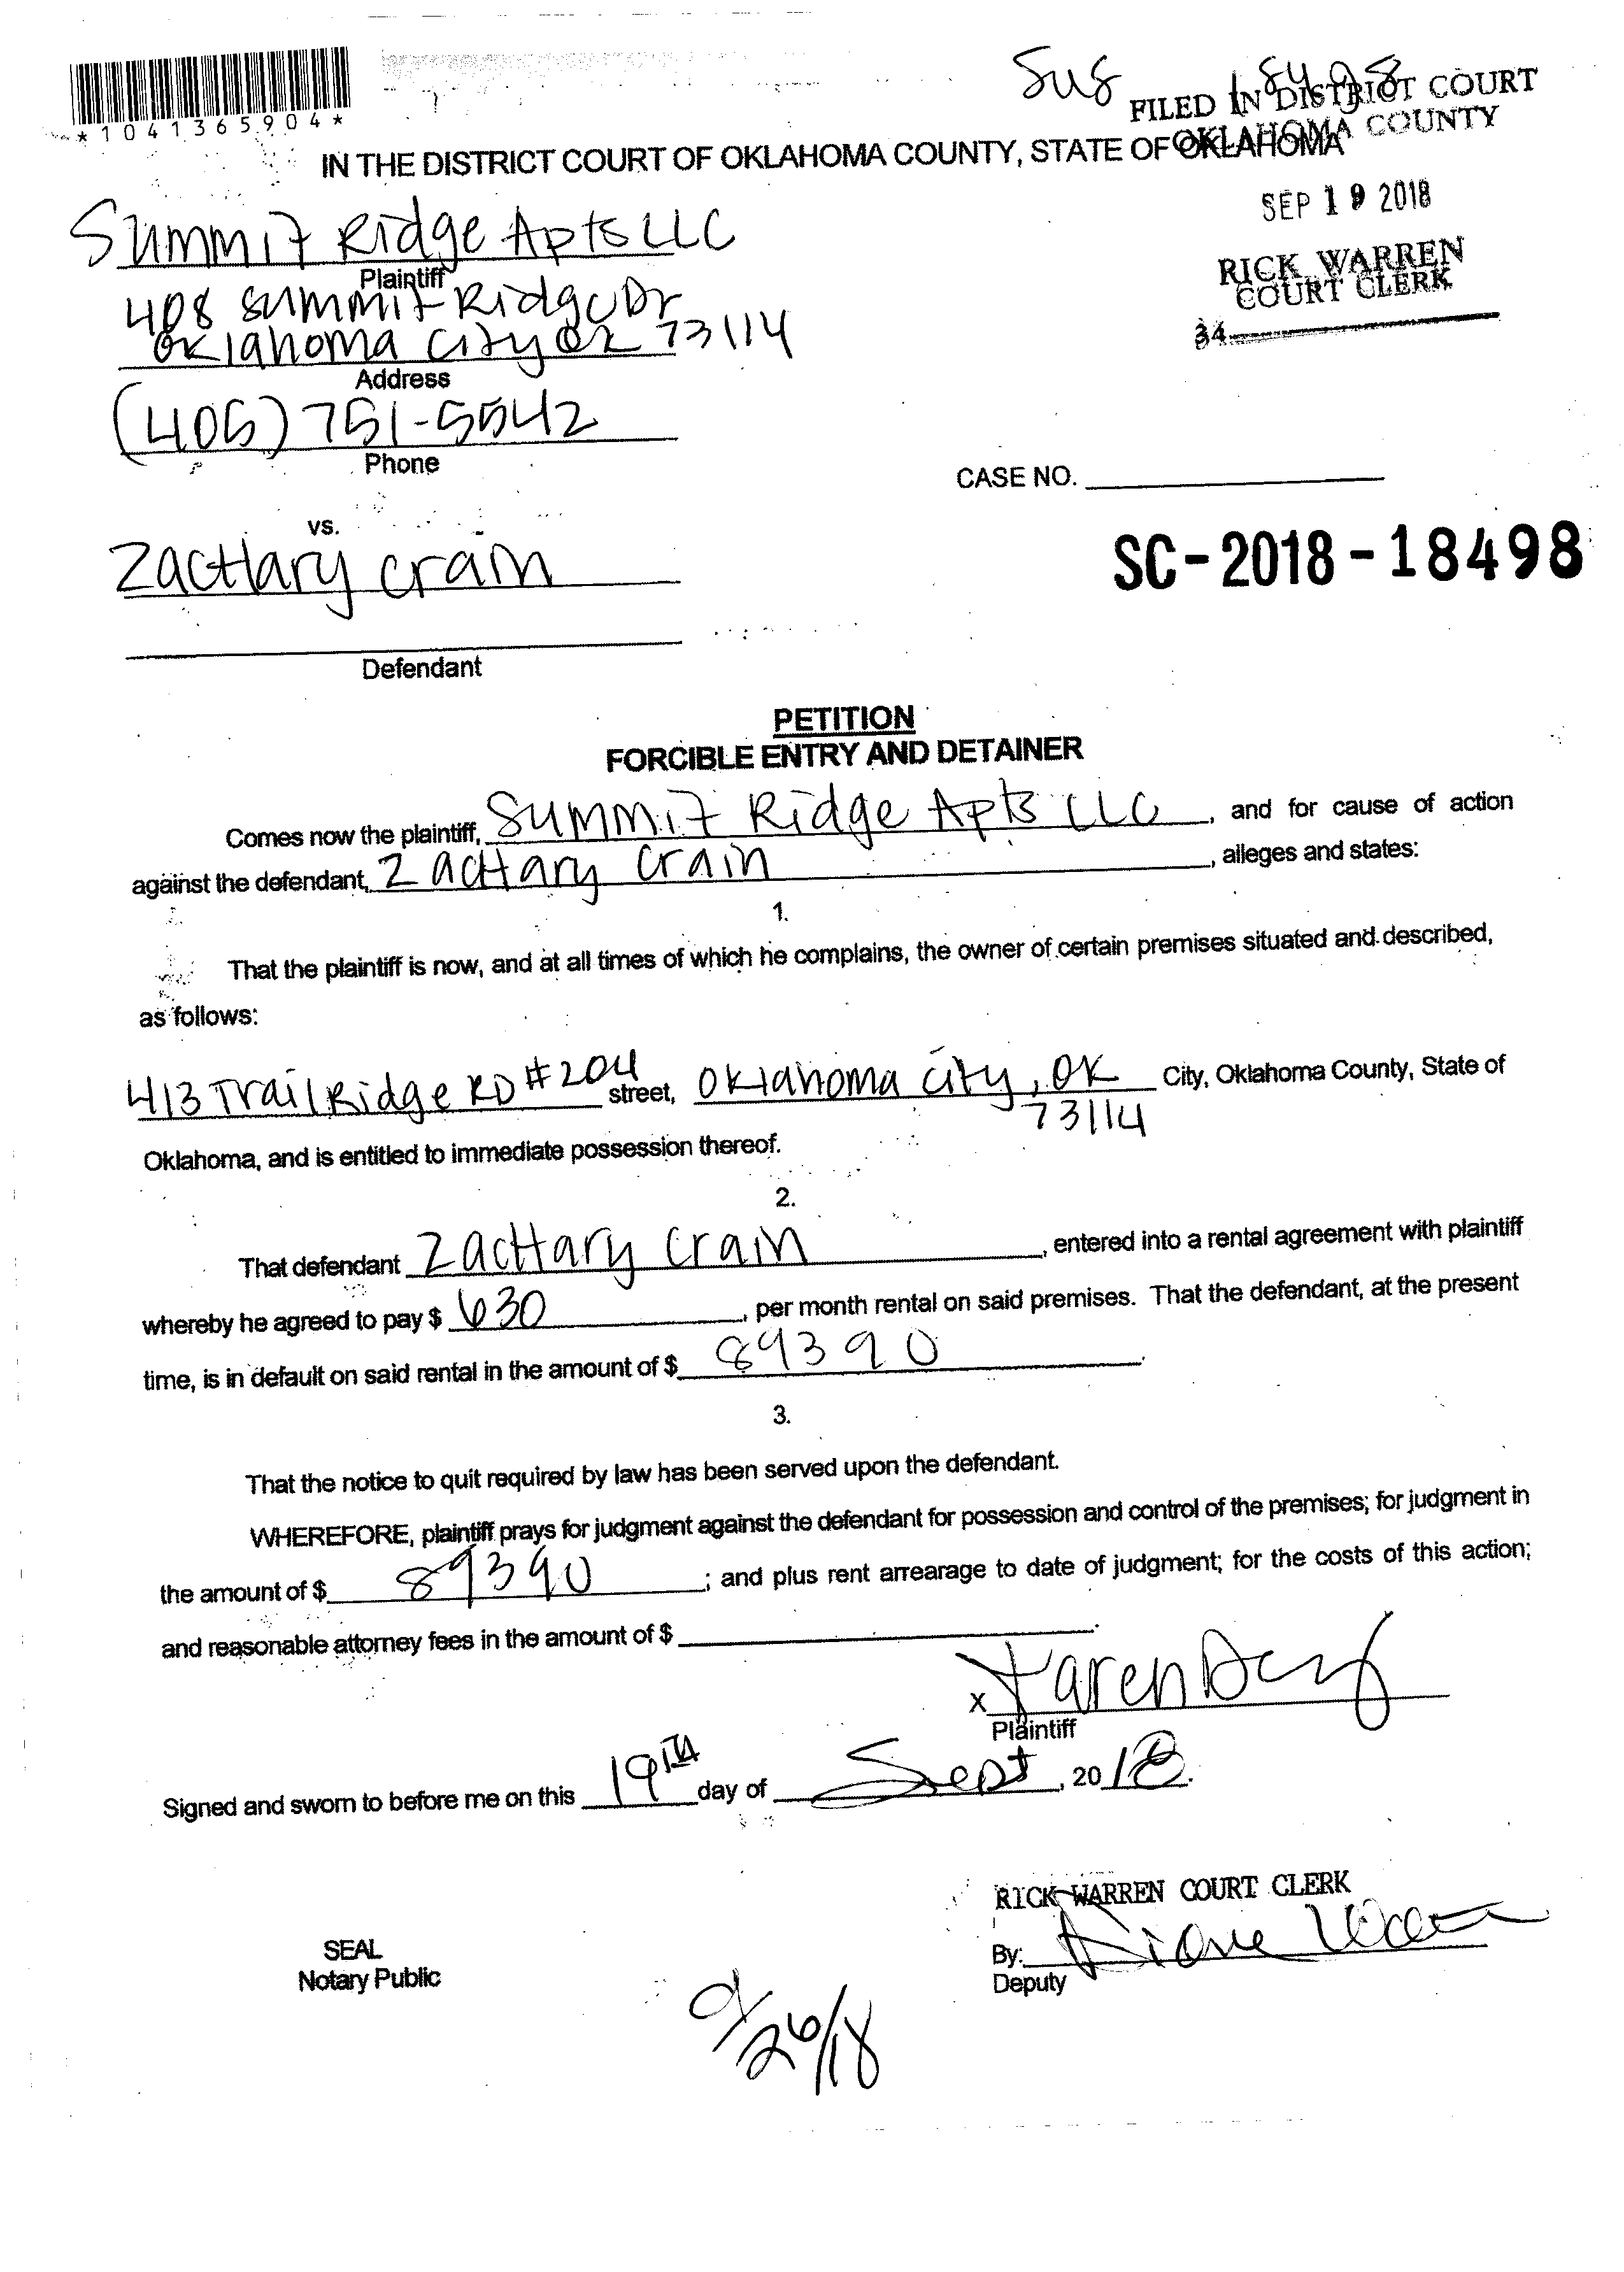 *1041365904*
SUS 18498
FILED IN DISTRICT COURT
OKLAHOMA COUNTY
IN THE DISTRICT COURT OF OKLAHOMA COUNTY, STATE OF OKLAHOMA
SEP 19 2018
RICK WARREN
COURT CLERK
34
Summit Ridge Apts LLC
Plaintiff
408 Summit Ridge Dr
Oklahoma City OK 73114
Address
(405) 751-5542
Phone
CASE NO.
SC-2018-18498
vs.
Zachary Crain
Defendant
PETITION
FORCIBLE ENTRY AND DETAINER
Comes now the plaintiff, Summit Ridge Apts LLC, and for cause of action
against the defendant, Zachary Crain, alleges and states:
1.
That the plaintiff is now, and at all times of which he complains, the owner of certain premises situated and described,
as follows:
413 Trail Ridge RD #204 street, Oklahoma City, OK City, Oklahoma County, State of
73114
Oklahoma, and is entitled to immediate possession thereof.
2.
That defendant Zachary Crain, entered into a rental agreement with plaintiff
whereby he agreed to pay $ 630, per month rental on said premises. That the defendant, at the present
time, is in default on said rental in the amount of $ 89390.
3.
That the notice to quit required by law has been served upon the defendant.
WHEREFORE, plaintiff prays for judgment against the defendant for possession and control of the premises; for judgment in
the amount of $ 89390; and plus rent arrearage to date of judgment; for the costs of this action;
and reasonable attorney fees in the amount of $ .
x Karen
Plaintiff
Signed and sworn to before me on this 19TH day of Sept, 2018.
RICK WARREN COURT CLERK
By: Diane
Deputy
SEAL
Notary Public
9/26/18